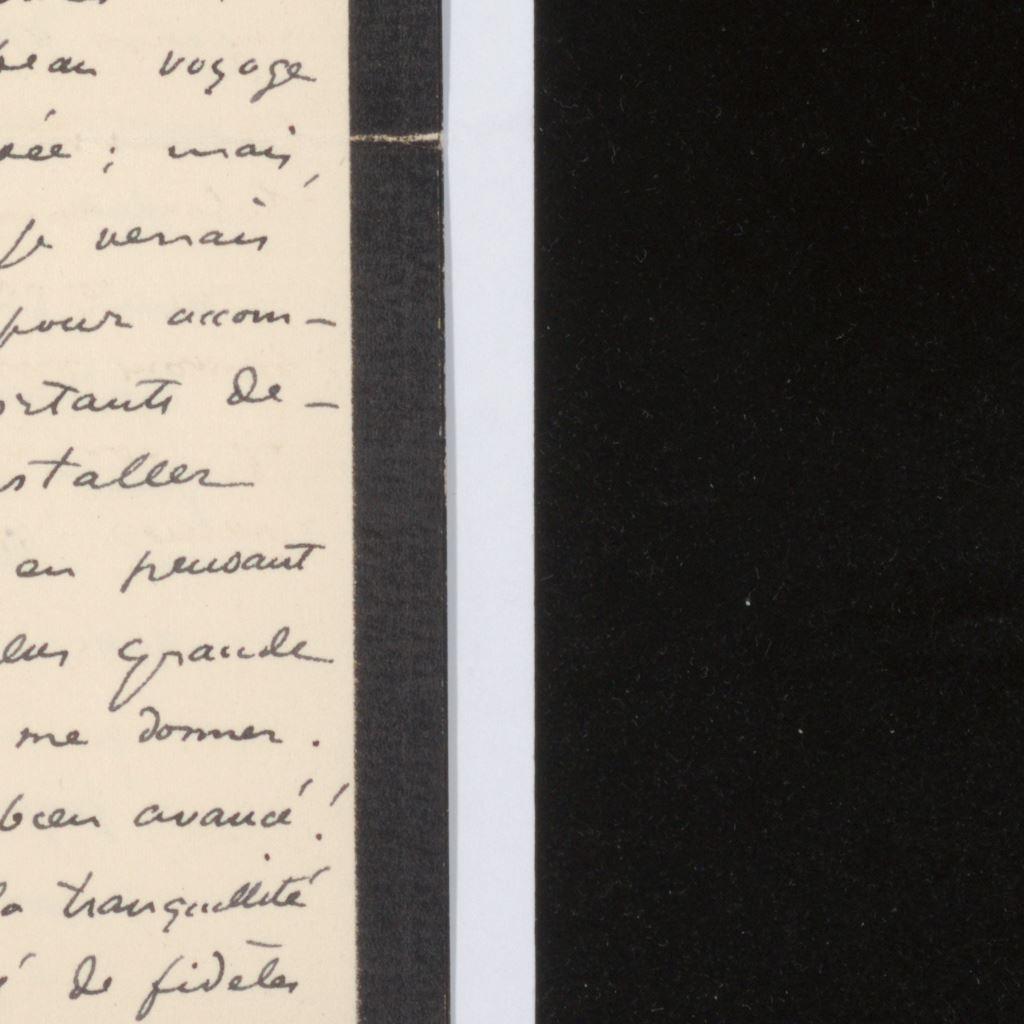 beau voyage
sée ; mais,
je verrais
pour accom-
ortants de-
staller
en pensant
grande
me donner.
bien avancé !
la tranquillité
de fidèles